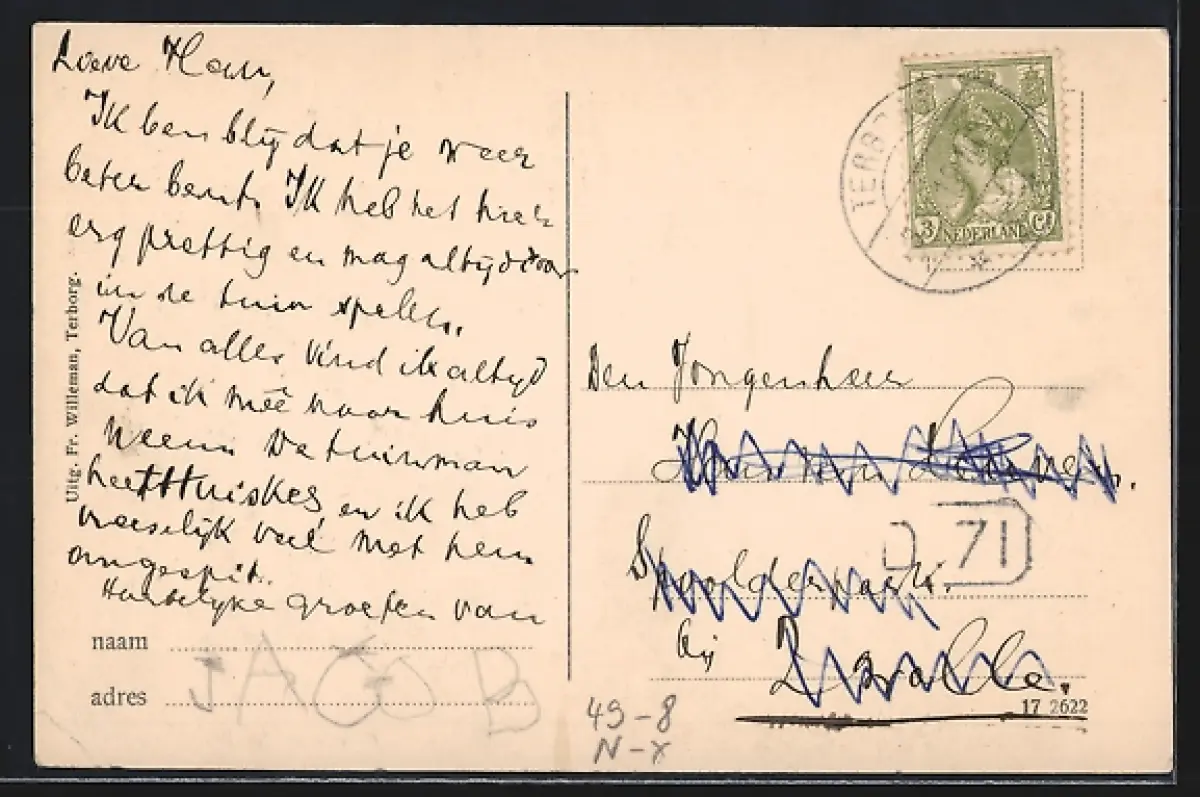 Lieve Han,
Ik ben blij dat je weer
beter bent. Ik heb het hier
erg prettig en mag altijd door
in de tuin spelen.
Van alles vind ik altijd
dat ik mee naar huis
neem. De tuinman
heet Huiskes en ik heb
vreeselijk veel met hem
omgespit.
Hartelijke groeten van
naam
JACOB
adres
Uitg. Fr. Willeman, Terborg.
TERB
3 NEDERLAND Ct
Den Jongenheer
D 71
Spoolderpark.
bij
Zwolle.
17 2622
49-8
N-X